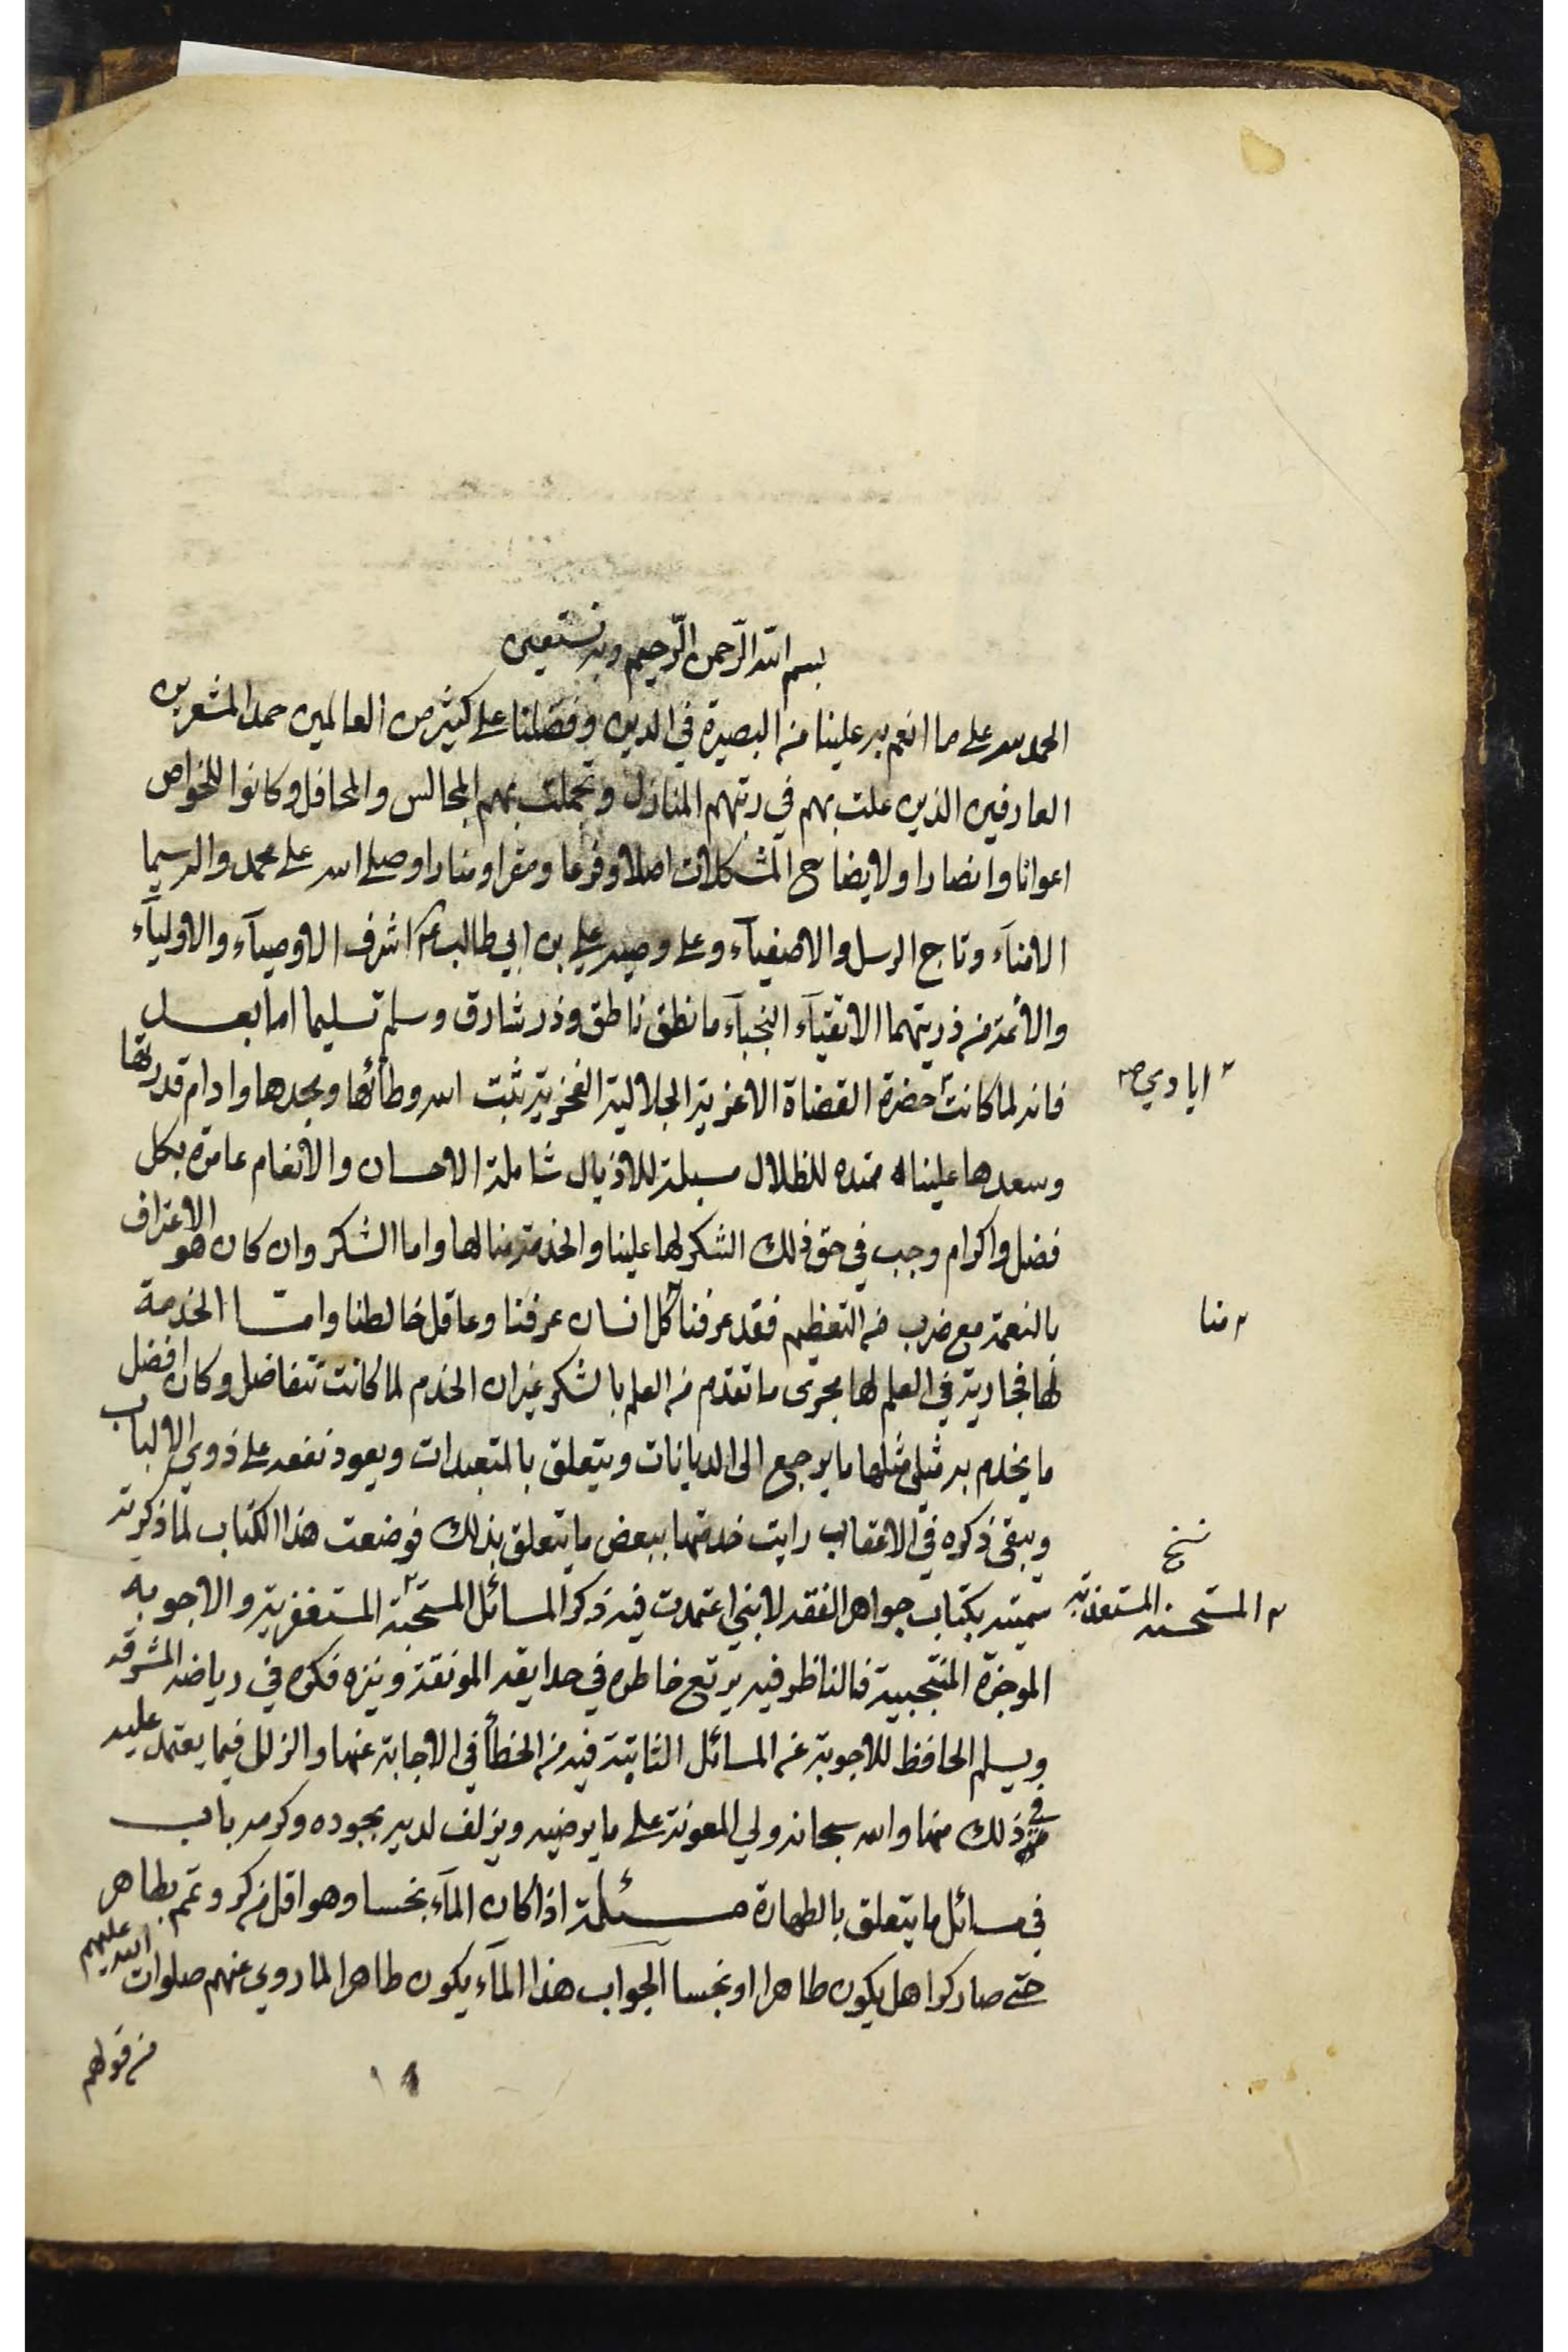 بسم الله الرّحمن الرّحيم وبه نستعين
الحمد لله على ما انعم به علينا من البصيرة في الدين وفضلنا على كثير من العالمين حمد المشعرين
العارفين الذين علت بهم في رتبهم المنازل وتجملت بهم المجالس والمحافل وكانوا للخواص
اعوانا وانصارا ولايضاح المشكلات اصلا وفرعا ومقرا ومنارا وصلى الله على محمد واله سيما
الامنآء وتاج الرسل والاصفيآء وعلى وصيه علي بن ابي طالب ع اشرف الاوصيآء والاوليآء
والائمة من ذريتهما الاتقيآء النجبآء ما نطق ناطق وذر شارق وسلم تسليما اما بعد
فانه لما كانت حضرة القضاة الاعزية الجلالية الفخرية ثبت الله وطأئها ومجدها وادام قدرتها
ايادي ص
وسعدها علينا ممتده للظلال مسبلة للاذيال شاملة الاحسان والانعام عامرة بكل
فضل واكرام وجب في حق ذلك الشكر لها علينا والخدمة منا لها واما الشكر وان كان هو الاعتراف
بالنعمة مع ضرب من التعظيم فقد عرفنا كل انسان عرفنا وعاقل خالطنا وامّا الخدمة
منا
لها فجارية في العلم لها مجرى ما تقدم من العلم بالشكر غير ان الخدم لما كانت تتفاضل وكان افضل
ما يخدم به مثلي مثلها ما يرجع الى الديانات ويتعلق بالمتعبدات ويعود نفعه على ذوي الالباب
ويبقى ذكره في الاعقاب رايت خدمتها ببعض ما يتعلق بذلك فوضعت هذا الكتاب لما ذكرته
سميته بكتاب جواهر الفقه لانني اعتمدت فيه ذكر المسائل المستحبة المستغفرية والاجوبه
نسخ
المستحسنه المستعذبة
الموجزة المنتجبية فالناظر فيه يرتع خاطره في حدايقه المونقة وينزه فكره في رياضه المشرقه
ويسلم الحافظ للاجوبة عن المسائل الثابتة فيه من الخطأ في الاجابة عنها والزلل فيما يعتمد عليه
في ذلك منها والله سبحانه ولي المعونة على ما يرضيه ويزلف لديه بجوده وكرمه باب
في مسائل ما يتعلق بالطهارة مسئلة اذا كان المآء نجسا وهو اقل من كر وتمم بطاهر
حتى صار كرا هل يكون طاهرا او نجسا الجواب هذا المآء يكون طاهرا لما روي عنهم صلوات الله عليهم
من قولهم